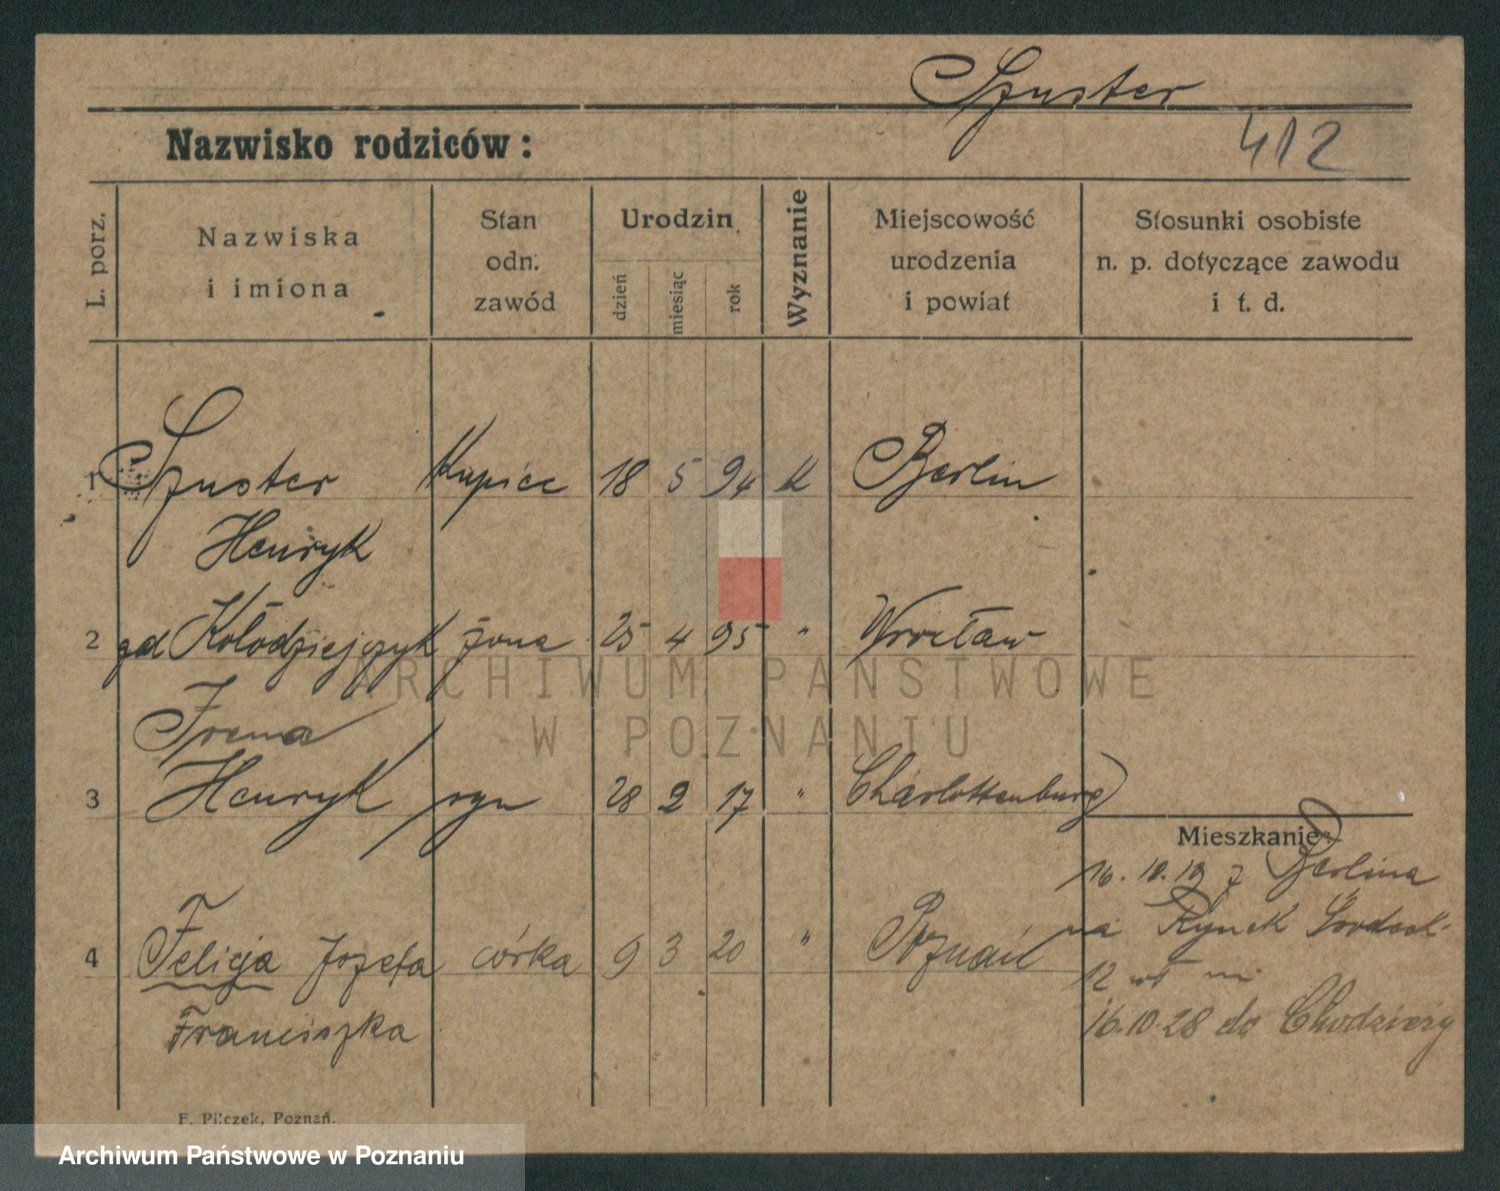 Szuster
Nazwisko rodziców:
412
L. porz.
Nazwiska
i imiona
Stan
odn.
zawód
Urodzin
dzień
miesiąc
rok
Wyznanie
Miejscowość
urodzenia
i powiat
Stosunki osobiste
n. p. dotyczące zawodu
i t. d.
1 Szuster Kupiec 18 5 94 k Berlin
Henryk
2 zd Kołodziejczyk żona 25 4 95 " Wrocław
ARCHIWUM PAŃSTWOWE
Irena
W POZNANIU
3 Henryk syn 28 2 17 " Charlottenburg
Mieszkanie:
16.10.19 z Berlina
na Rynek Środeck.
4 Felicja Józefa córka 9 3 20 " Poznań
12
Franciszka
16.10.28 do Chodzieży
F. Pilczek, Poznań.
Archiwum Państwowe w Poznaniu